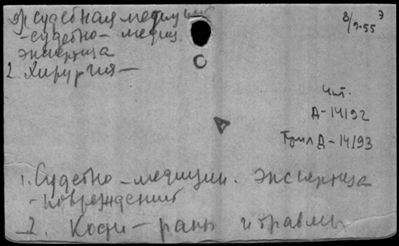 1) Судебная медицина
-судебно-медиц.
экспертиза
2. Хирургия-
8/9-55 э
Чит.
Д-14192
Д-14193
1. Судебно-медицин. экспертиза
-повреждений
2. Кости-раны и травмы